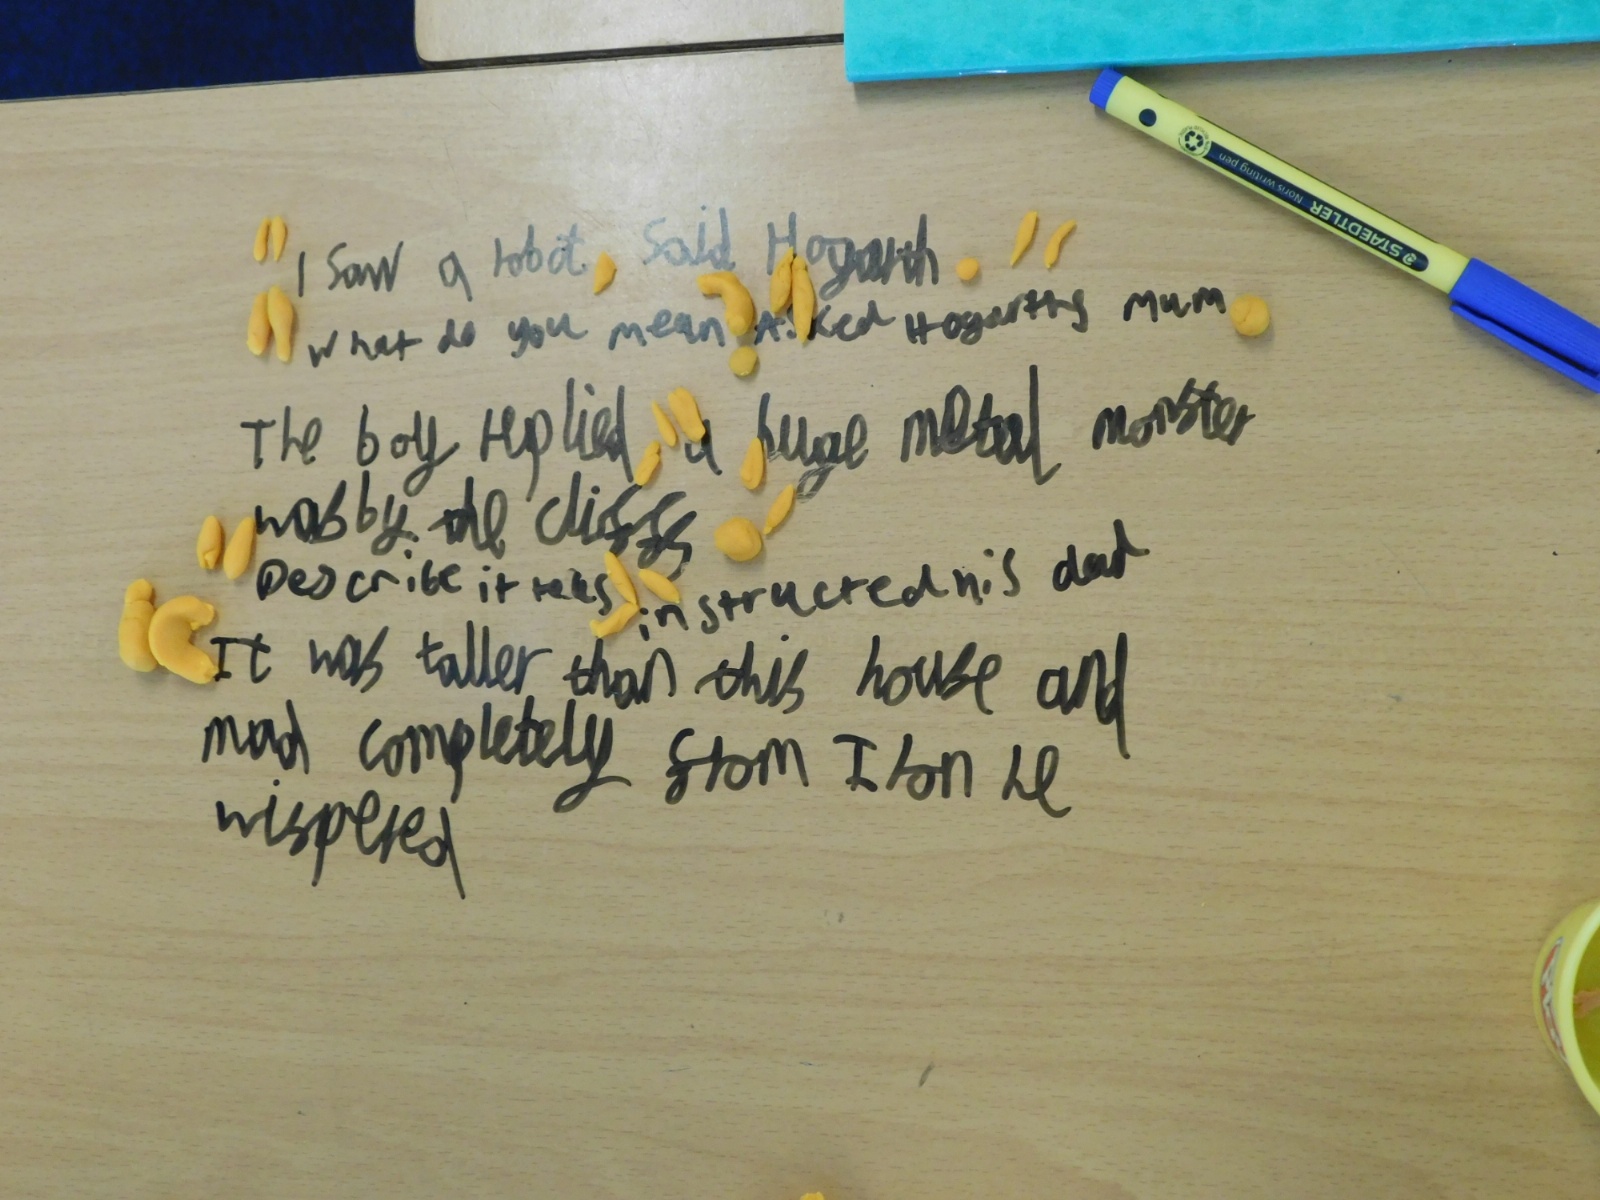 STAEDTLER
Noris writing pen
"I Saw a robot, Said Hogarth."
"What do you mean?" Asked Hogarths Mum.
The boy replied, "a huge metal monster
was by the cliffs."
"Describe it to us," instructed his dad
"It was taller than this house and
mad completely from Iron he
wispered